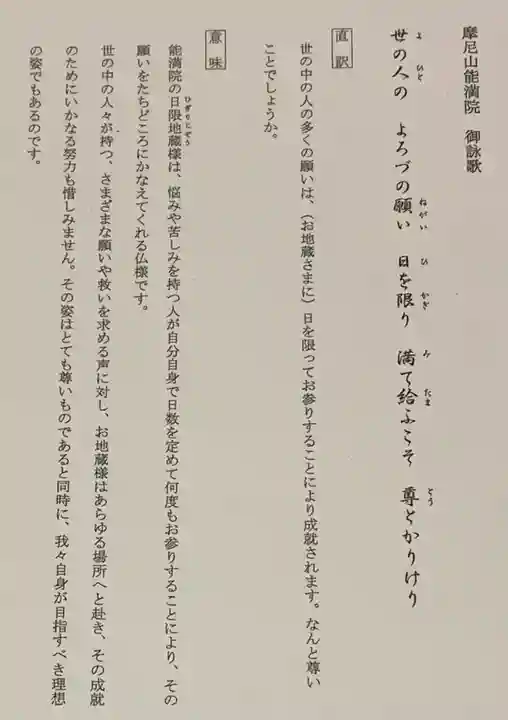 摩尼山能満院　御詠歌
世の人の　よろづの願い　日を限り　満て給ふこそ　尊とかりけり
よ　ひと　ねがい　ひ　かぎ　み　たま　とう
直訳
世の中の人の多くの願いは、（お地蔵さまに）日を限ってお参りすることにより成就されます。なんと尊い
ことでしょうか。
意味
能満院の日限地蔵様は、悩みや苦しみを持つ人が自分自身で日数を定めて何度もお参りすることにより、その
ひぎりじぞう
願いをたちどころにかなえてくれる仏様です。
世の中の人々が持つ、さまざまな願いや救いを求める声に対し、お地蔵様はあらゆる場所へと赴き、その成就
のためにいかなる努力も惜しみません。その姿はとても尊いものであると同時に、我々自身が目指すべき理想
の姿でもあるのです。